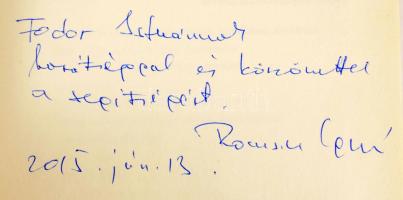 Fodor Istvánnak
barátsággal és köszönettel
a segítségért.
Romsics Ignác
2015. jún. 13.